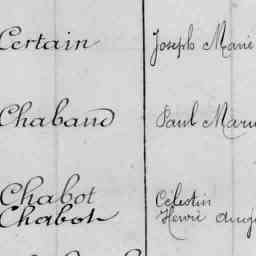 Certain Joseph Marie
Chabaud Paul Marie
Chabot Célestin
Chabot Henri